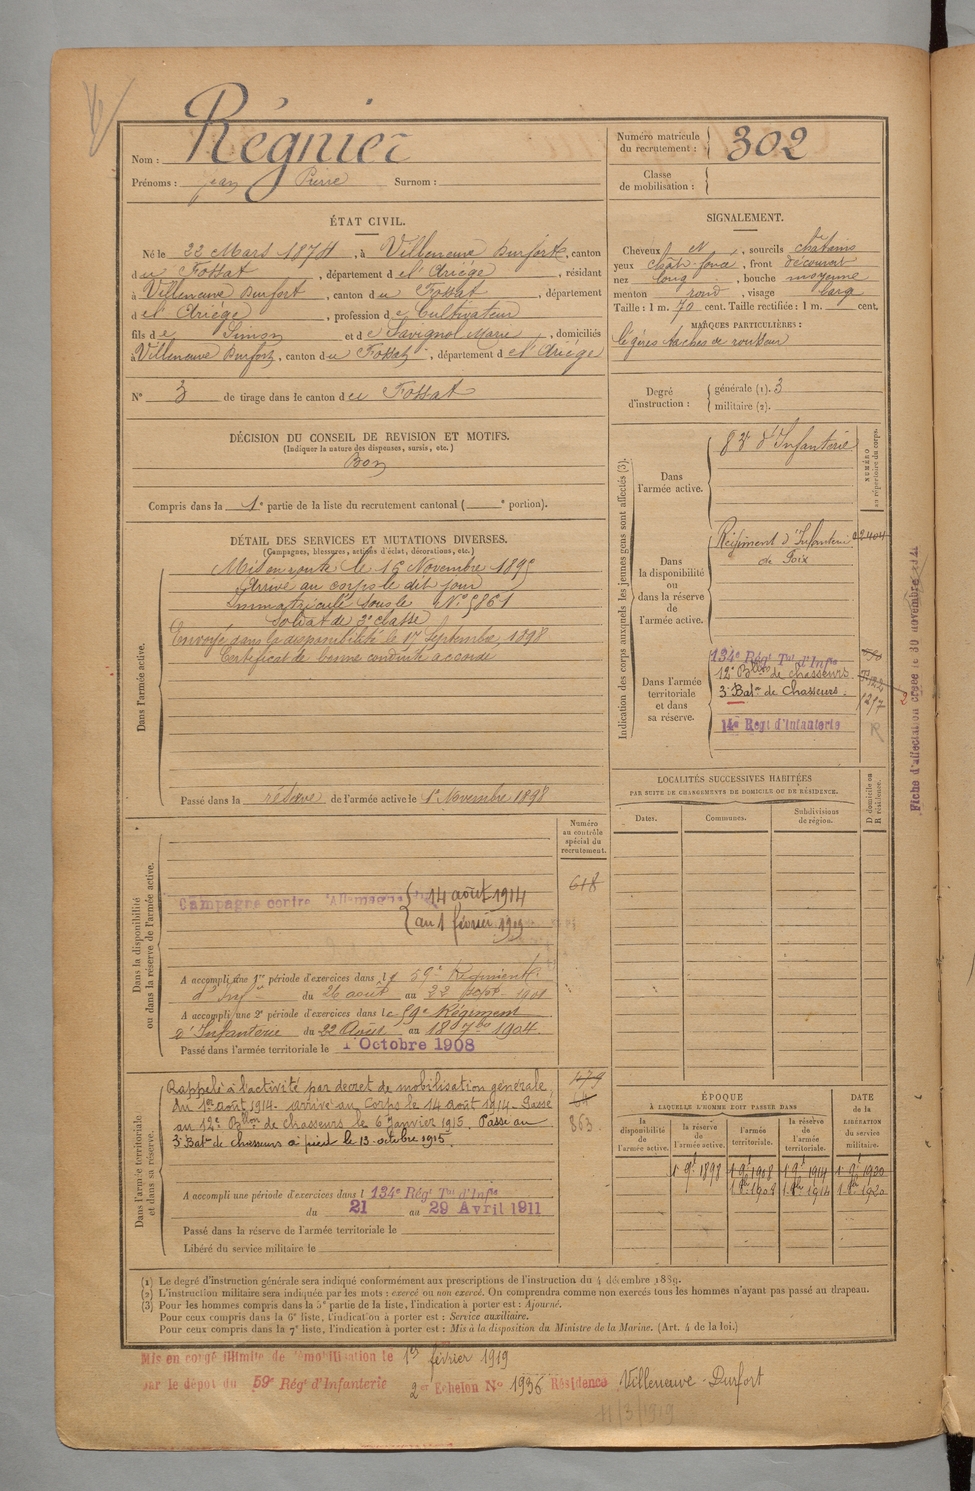 Nom : Régnier
Prénoms : Jean Pierre Surnom :
Numéro matricule du recrutement : 302
Classe de mobilisation :
ÉTAT CIVIL.
Né le 22 Mars 1874, à Villeneuve Durfort, canton
du Fossat, département de l'Ariége, résidant
à Villeneuve Durfort, canton du Fossat, département
de l'Ariége, profession de Cultivateur
fils de Simon et de Savignol Marie, domiciliés
à Villeneuve Durfort, canton du Fossat, département de l'Ariége
N° 3 de tirage dans le canton du Fossat
SIGNALEMENT.
Cheveux et, sourcils chatains
yeux chat. foncé, front découvert
nez long, bouche moyenne
menton rond, visage large
Taille : 1 m. 70 cent. Taille rectifiée : 1 m. cent.
MARQUES PARTICULIÈRES :
légères taches de rousseur
Degré d'instruction : générale (1). 3
militaire (2).
DÉCISION DU CONSEIL DE REVISION ET MOTIFS.
(Indiquer la nature des dispenses, sursis, etc.)
Bon
Compris dans la 1e partie de la liste du recrutement cantonal ( e portion).
DÉTAIL DES SERVICES ET MUTATIONS DIVERSES.
(Campagnes, blessures, actions d'éclat, décorations, etc.)
Dans l'armée active.
Mis en route le 16 Novembre 1895
Arrivé au corps le dit jour
Immatriculé sous le N° 5861
Soldat de 2e classe
Envoyé dans la disponibilité le 1er Septembre 1898
Certificat de bonne conduite accordé
Passé dans la réserve de l'armée active le 1er Novembre 1898
Indication des corps auxquels les jeunes gens sont affectés (3).
NUMÉRO au répertoire du corps.
Dans l'armée active.
83e d'Infanterie
Dans la disponibilité ou dans la réserve de l'armée active.
Régiment d'Infanterie
de Foix
Dans l'armée territoriale et dans sa réserve.
134e Régt Tal d'Infie
12e Bllon de chasseurs.
3e Baton de Chasseurs. 1217
14e Regt d'Infanterie
R
Fiche d'affectation créée le 30 novembre
LOCALITÉS SUCCESSIVES HABITÉES
PAR SUITE DE CHANGEMENTS DE DOMICILE OU DE RÉSIDENCE.
Dates. Communes. Subdivisions de région. D domicile ou R résidence.
Numéro au contrôle spécial du recrutement.
618
Dans la disponibilité ou dans la réserve de l'armée active.
Campagne contre l'Allemagne du 14 août 1914
au 1 février 1919
A accompli une 1re période d'exercices dans le 59e Régiment
d'Infie du 26 août au 22 sept. 1901
A accompli une 2e période d'exercices dans le 59e Régiment
d'Infanterie du 22 Août au 18 7bre 1904.
Passé dans l'armée territoriale le 1 Octobre 1908
Dans l'armée territoriale et dans sa réserve.
Rappelé à l'activité par décret de mobilisation générale
du 1er août 1914 - arrivé au Corps le 14 août 1914 - Passé
au 12e Bllon de chasseurs le 6 Janvier 1915. Passé au
3e Baton de chasseurs à pied le 13 octobre 1915.
863
A accompli une période d'exercices dans l 134e Régt Tal d'Infie
du 21 au 29 Avril 1911
Passé dans la réserve de l'armée territoriale le
Libéré du service militaire le
ÉPOQUE
À LAQUELLE L'HOMME DOIT PASSER DANS
DATE de la LIBÉRATION du service militaire.
la disponibilité de l'armée active. la réserve de l'armée active. l'armée territoriale. la réserve de l'armée territoriale.
1 9t 1898 1 9t 1908 1 9t 1914 1 9t 1920
1 8bre 1908 1 8bre 1914 1 8bre 1920
(1) Le degré d'instruction générale sera indiqué conformément aux prescriptions de l'instruction du 4 décembre 1889.
(2) L'instruction militaire sera indiquée par les mots : exercé ou non exercé. On comprendra comme non exercés tous les hommes n'ayant pas passé au drapeau.
(3) Pour les hommes compris dans la 5e partie de la liste, l'indication à porter est : Ajourné.
Pour ceux compris dans la 6e liste, l'indication à porter est : Service auxiliaire.
Pour ceux compris dans la 7e liste, l'indication à porter est : Mis à la disposition du Ministre de la Marine. (Art. 4 de la loi.)
Mis en congé illimité de démobilisation le 1er février 1919
par le dépôt du 59e Régt d'Infanterie 2e Echelon N° 1936 Résidence Villeneuve-Durfort
11/3/1919